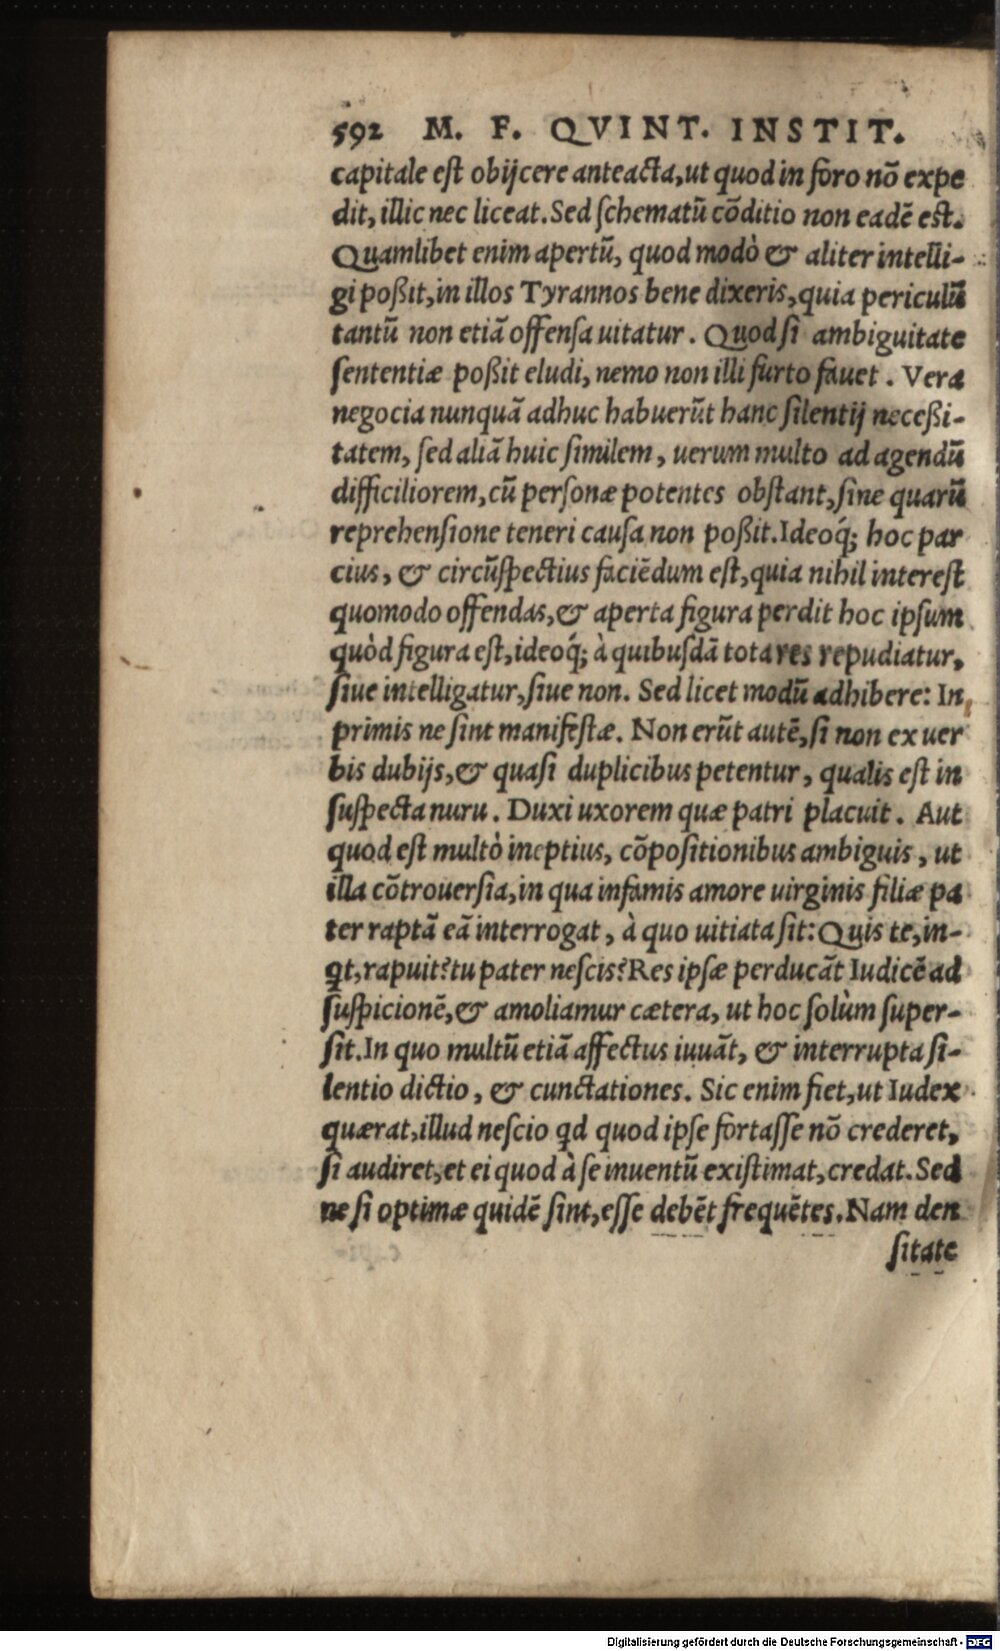 592 M. F. QVINT. INSTIT.
capitale est obijcere anteacta,ut quod in foro nō expe
dit, illic nec liceat. Sed schematū cōditio non eadē est.
Quamlibet enim apertū, quod modò & aliter intelli-
gi poßit,in illos Tyrannos bene dixeris,quia periculū
tantū non etiā offensa uitatur. Quod si ambiguitate
sententiæ poßit eludi, nemo non illi furto fauet. Vera
negocia nunquā adhuc habuerūt hanc silentij neceßi-
tatem, sed aliā huic similem, uerum multo ad agendū
difficiliorem,cū personæ potentes obstant,sine quarū
reprehensione teneri causa non poßit.Ideoq́; hoc par
cius, & circūspectius faciēdum est,quia nihil interest
quomodo offendas,& aperta figura perdit hoc ipsum
quòd figura est,ideoq́; à quibusdā tota res repudiatur,
siue intelligatur,siue non. Sed licet modū adhibere: In
primis ne sint manifestæ. Non erūt autē,si non ex uer
bis dubijs,& quasi duplicibus petentur, qualis est in
suspecta nuru. Duxi uxorem quæ patri placuit. Aut
quod est multò ineptius, cōpositionibus ambiguis, ut
illa cōtrouersia,in qua infamis amore uirginis filiæ pa
ter raptā eā interrogat, à quo uitiata sit: Quis te,in-
qt,rapuit? tu pater nescis? Res ipsæ perducāt Iudicē ad
suspicionē,& amoliamur cætera, ut hoc solùm super-
sit. In quo multū etiā affectus iuuāt, & interrupta si-
lentio dictio, & cunctationes. Sic enim fiet,ut Iudex
quærat,illud nescio qd quod ipse fortasse nō crederet,
si audiret,et ei quod à se inuentū existimat,credat. Sed
ne si optimæ quidē sint,esse debēt frequētes. Nam den
sitate
Digitalisierung gefördert durch die Deutsche Forschungsgemeinschaft - DFG